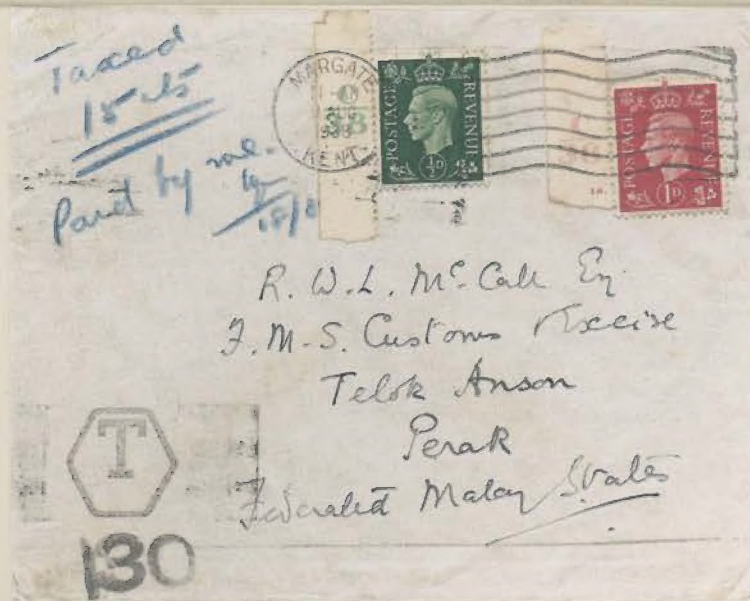 Taxed
15 cts
Paid by me.
MARGATE
KENT
38
POSTAGE REVENUE
½D
POSTAGE REVENUE
1D
R. W. L. McCall Esq
F. M. S. Customs & Excise
Telok Anson
Perak
Federated Malay States
T
130